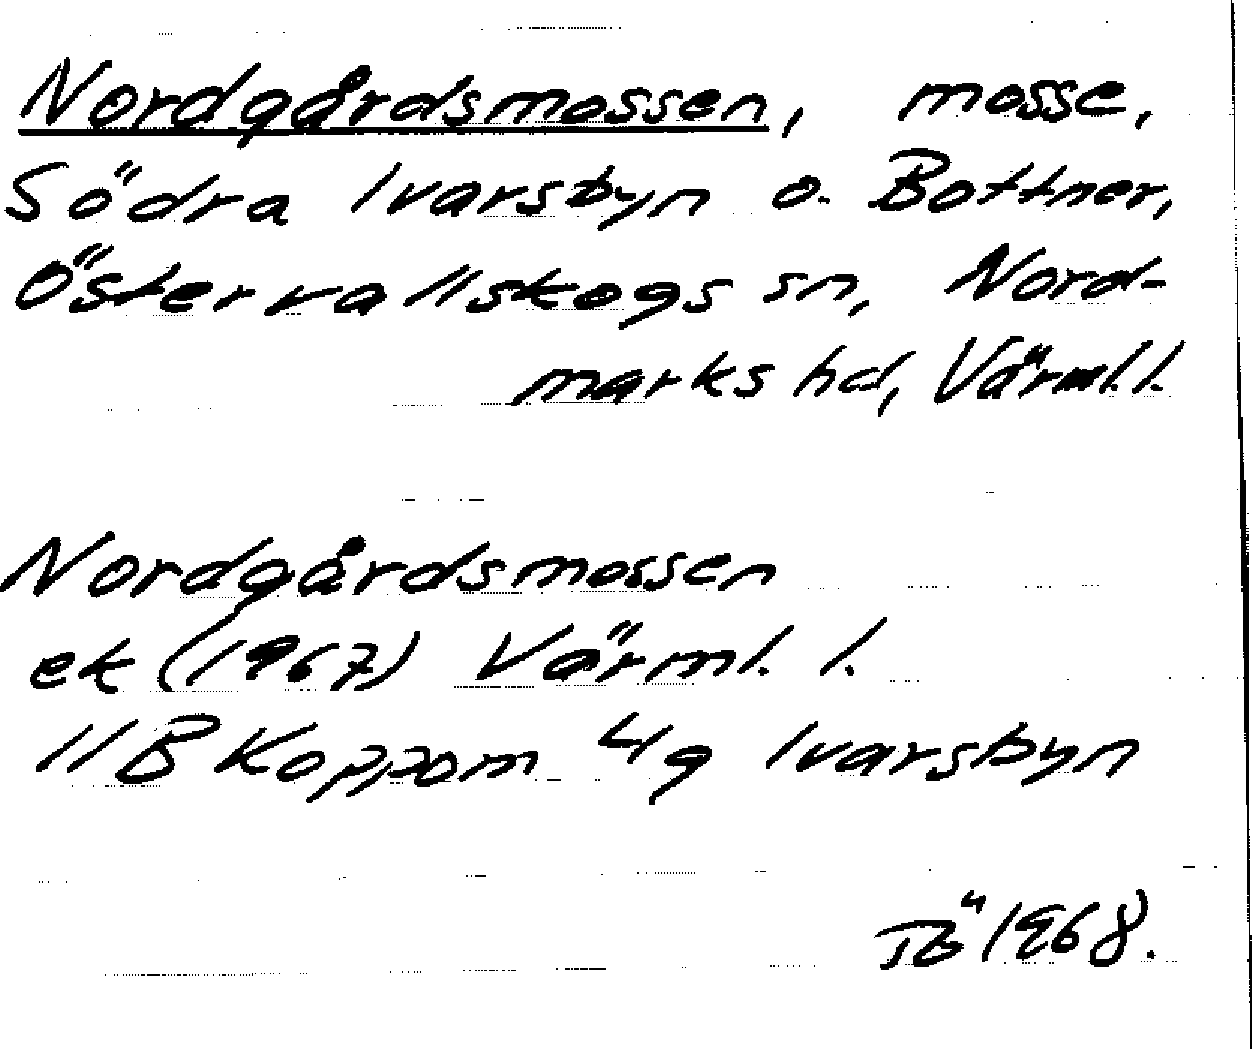 Nordgårdsmossen, mosse,
Södra Ivarsbyn o. Bottner,
Östervallskogs sn, Nord-
marks hd, Värml.l.
Nordgårdsmossen
ek (1967) Värml. l.
11B Koppom 4g Ivarsbyn
1968.